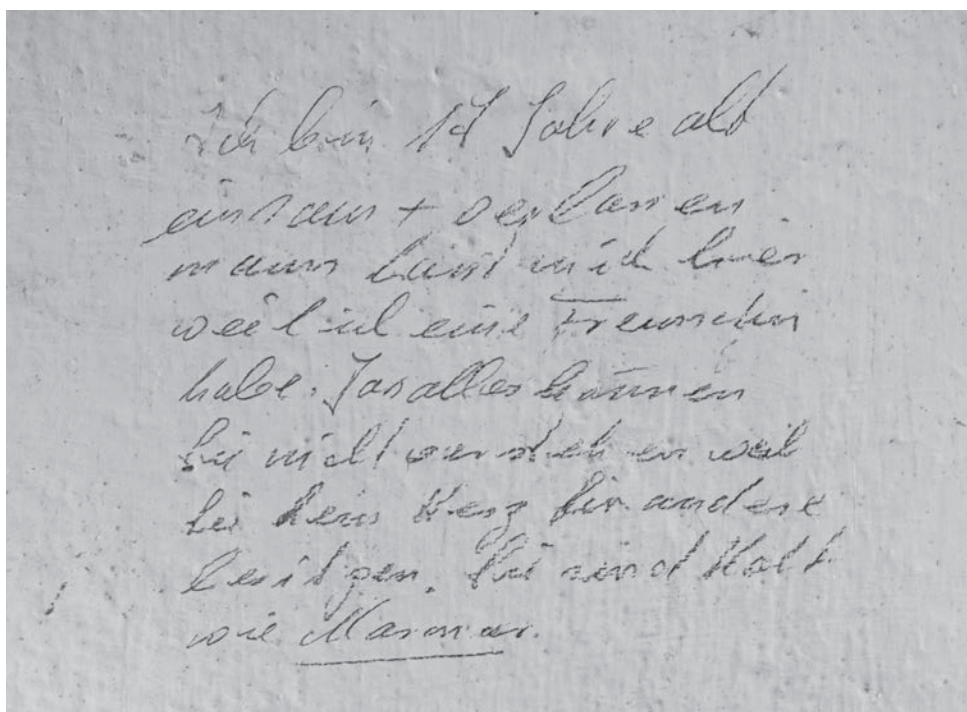 Ich bin 17 Jahre alt
einsam + verlassen
mann haßt mich hier
weil ich eine Freundin
habe. Das alles können
Sie nicht verstehen weil
Sie kein Herz für andere
besitzen. Sie sind Kalt
wie Marmor.